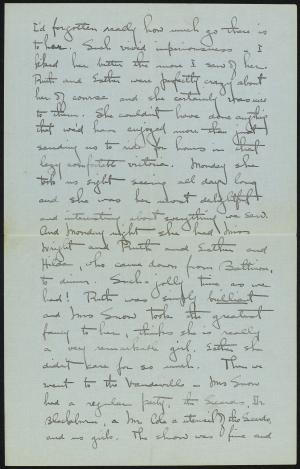 I'd forgotten really how much go there is
to her. Such varied imperiousness - I
liked her better the more I saw of her.
Ruth and Esther were perfectly crazy about
her of course and she certainly was nice
to them. She couldn't have done anything
that we'd have enjoyed more than just
sending us to ride for hours in that
lazy comfortable victoria. Monday she
took us sight seeing all day long
and she was her most delightful
and interesting about everything we saw.
And Monday night she had Miss
Wright and Ruth and Esther and
Hilda, who came down from Baltimore,
to dinner. Such a jolly time as we
had! Ruth was simply brilliant
and Mrs Snow took the greatest
fancy to her, thinks she is really
a very remarkable girl. Esther she
didn't care for so much. Then we
went to the Vaudeville - Mrs Snow
had a regular party, the Dr.
Blackburn, a Mr. Cole a of the
and us girls. The show was fine and